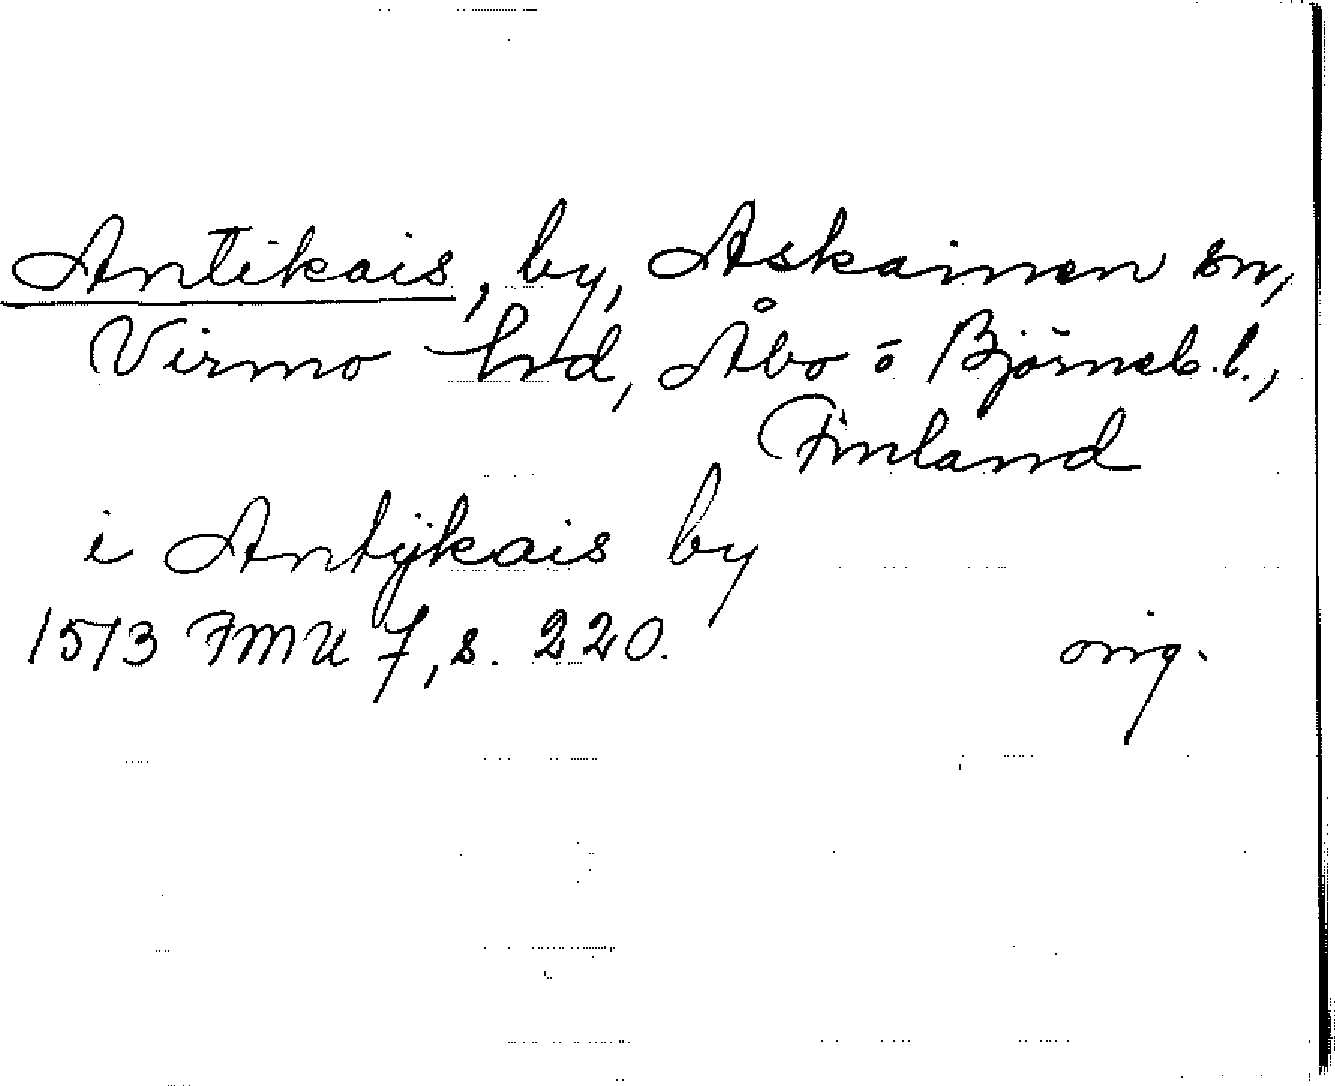 Antikais, by, Askainen sn,
Virmo hd, Åbo o Björneb. l.,
Finland
i Antijkais by
1513 FMU 7, s. 220. orig.